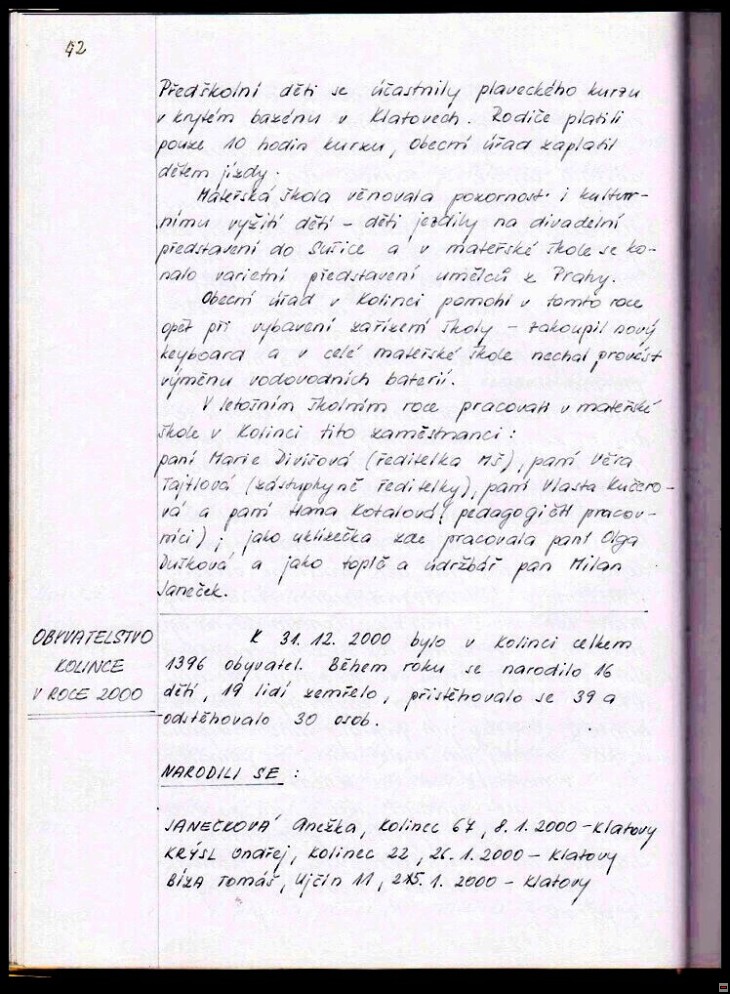 42
Předškolní děti se účastnily plaveckého kurzu
v krytém bazénu v Klatovech. Rodiče platili
pouze 10 hodin kurzu, Obecní úřad zaplatil
dětem jízdy.
Mateřská škola věnovala pozornost i kultur-
nímu vyžití dětí – děti jezdily na divadelní
představení do Sušice a v mateřské škole se ko-
nalo varietní představení umělců z Prahy.
Obecní úřad v Kolinci pomohl v tomto roce
opět při vybavení zařízení školy – zakoupil nový
keyboard a v celé mateřské škole nechal provést
výměnu vodovodních baterií.
V letošním školním roce pracovali v mateřské
škole v Kolinci tito zaměstnanci:
paní Marie Divišová (ředitelka MŠ), paní Věra
Tajtlová (zástupkyně ředitelky), paní Vlasta Kučero-
vá a paní Hana Kotalová (pedagogičtí pracov-
níci); jako uklízečka zde pracovala paní Olga
Dušková a jako topič a údržbář pan Milan
Janeček.
OBYVATELSTVO
KOLINCE
V ROCE 2000
K 31. 12. 2000 bylo v Kolinci celkem
1396 obyvatel. Během roku se narodilo 16
dětí, 19 lidí zemřelo, přistěhovalo se 39 a
odstěhovalo 30 osob.
NARODILI SE :
JANEČKOVÁ Anežka, Kolinec 67, 8. 1. 2000 – Klatovy
KRÝSL Ondřej, Kolinec 22, 26. 1. 2000 – Klatovy
BÍZA Tomáš, Ujčín 11, 25. 1. 2000 – Klatovy